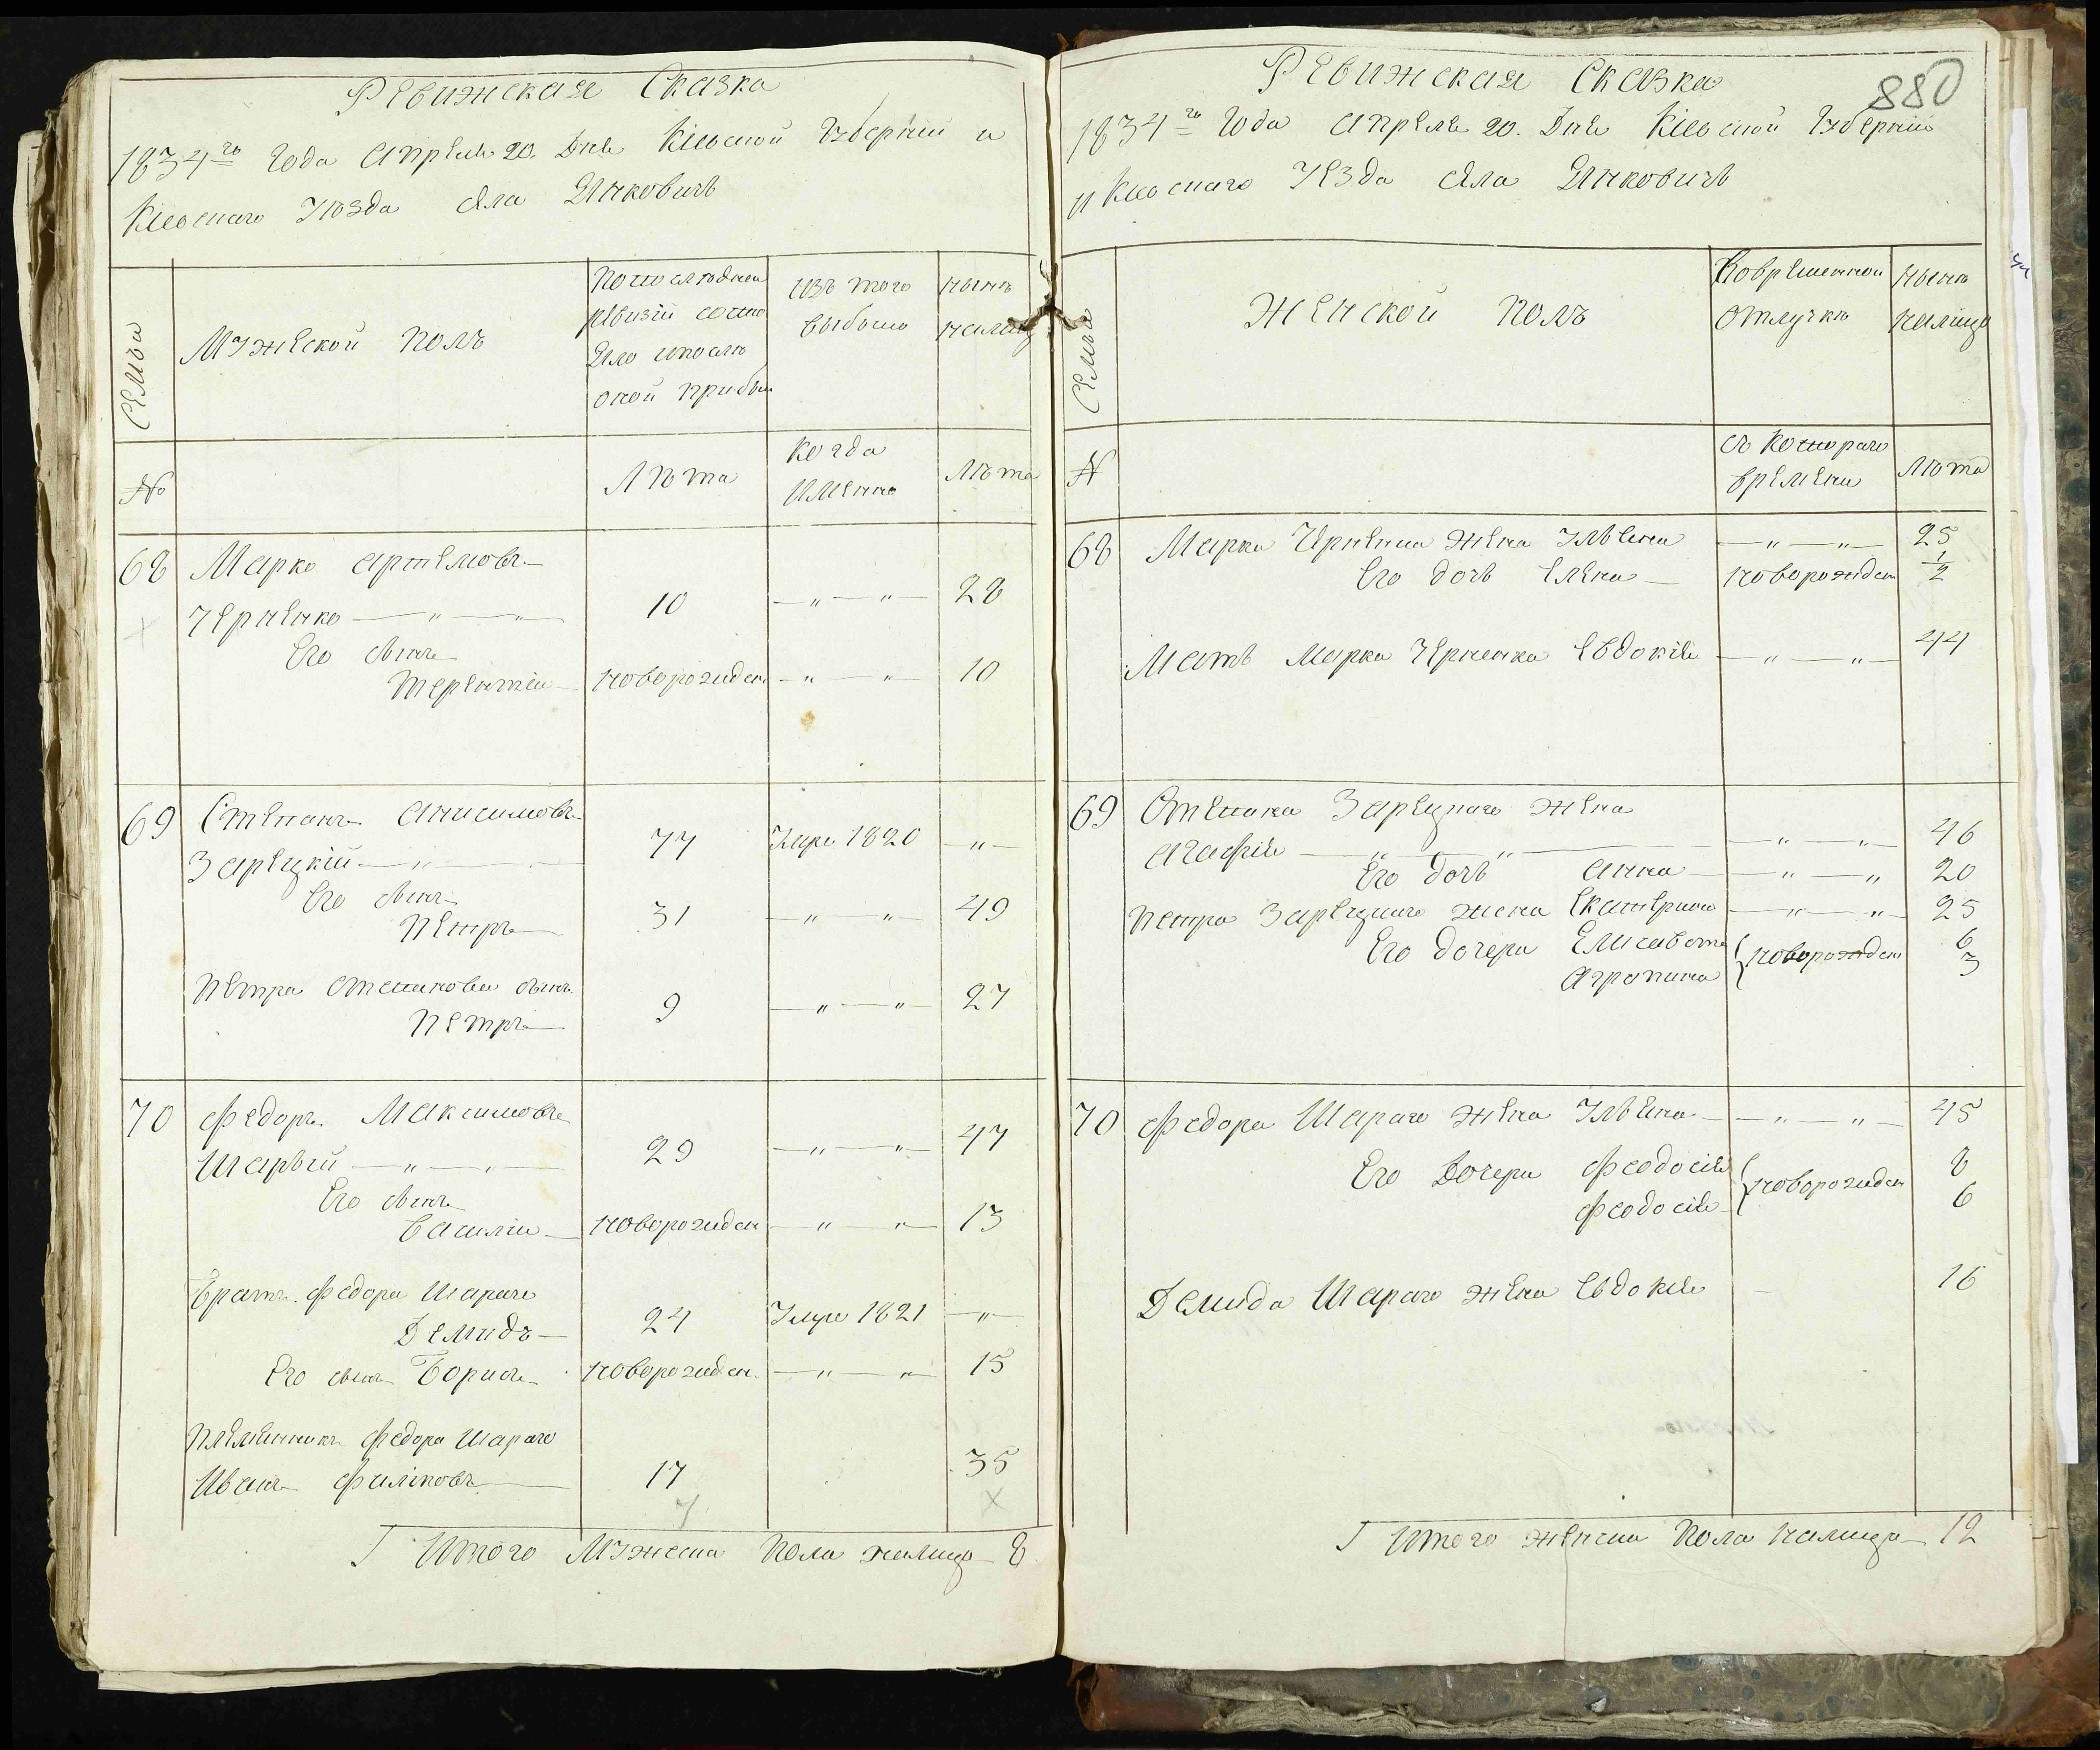 Ревижская Сказка
1834го Года Апреля 20. Дня Кіевской Губерніи и
Кіевскаго Уѣзда Села Янковичь
Семьи
Мужеской полъ
По последней
ревизіи состо
яло и после
оной прибы
изъ того
выбыло
ныне
налицо
№
Лѣта
Когда
именно
Лѣта
68 Марко Артемовъ
Черненко — " — " — 10 — " — " — 28
Его сынъ
Терентiи новорожден — " — " — 10
69 Степанъ Анисимовъ
Зарецкій — " — 77 Умре 1820 — " —
Его сынъ
Петръ 31 — " — " — 49
Петра Степанова сынъ
Петръ 9 — " — " — 27
70 Федоръ Максимовъ
Шарый — " — " — 29 — " — " — 47
Его сынъ
Василiи новорожден — " — " — 13
Братъ Федора Шараго
Демидъ 24 Умре 1821 — " —
Его сынъ Борисъ новорожден — " — " — 15
Племянникъ Федора Шараго
Иванъ Филіповъ 17 35
Итого Мужеска Пола налицо 8
880
Ревижская Сказка
1834го Года Апреля 20. Дня Кіевской Губерніи
и Кіевскаго Уезда Села Янковичь
Семьи
Женской полъ
Вовременной
отлучке
ныне
налицо
№
съ Котораго
времени
Лѣта
68 Марка Черненка жена Ульяна — " — " — 25
Его дочь Елена новорожден 1/2
Мать Марка Черненка Евдокія — " — " — 44
69 Степана Зарецкаго жена
Агафія — " — " — — " — " — 46
Его дочь Анна — " — " 20
Петра Зарецкаго жена Екатерина — " — " — 25
Его дочери Елисавета новорожден 6
Агропина 3
70 Федора Шараго жена Ульяна — " — " — 45
Его Дочери Феодосія новорожден 8
Феодосія 6
Демида Шараго жена Евдокія — 16
Итого женска Пола налицо 12